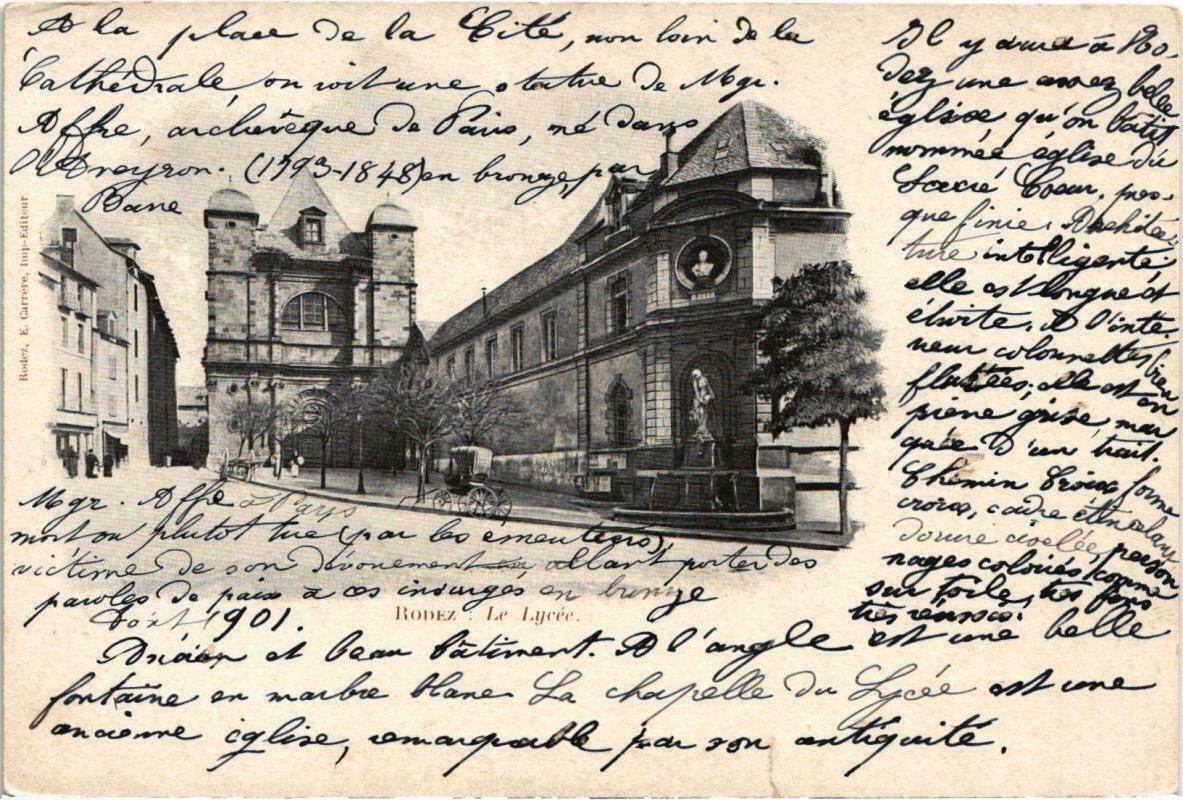 A la place de la Cité, non loin de la
Cathédrale, on voit une statue de Mgr.
Affre, archevêque de Paris, né dans
l'Aveyron. (1793-1848) en bronze, par
Barre
Rodez, E. Carrere, Imp-Editeur
Il y aura à Ro-
dez une assez belle
église qu'on bâtit
nommée église du
Sacré Coeur, pres-
que finie. Architec-
ture intelligente.
elle est longue et
étroite. A l'inté-
rieur colonnettes bien
flutées, elle est en
pierre grise, mar
quée d'un trait.
Chemin Croix forme
croix, cadre étincelant
dorure ciselée, person
nages coloriés, comme
sur toile, très fins
très réussis.
Mgr. Affre à Paris
mort ou plutot tué (par les émeutiers),
victime de son dévouement en allant porter des
paroles de paix à ces insurgés en bronze
Août 1901.
RODEZ : Le Lycée.
Ancien et beau bâtiment. A l'angle est une belle
fontaine en marbre blanc La chapelle du Lycée est une
ancienne église, remarquable par son antiquité.